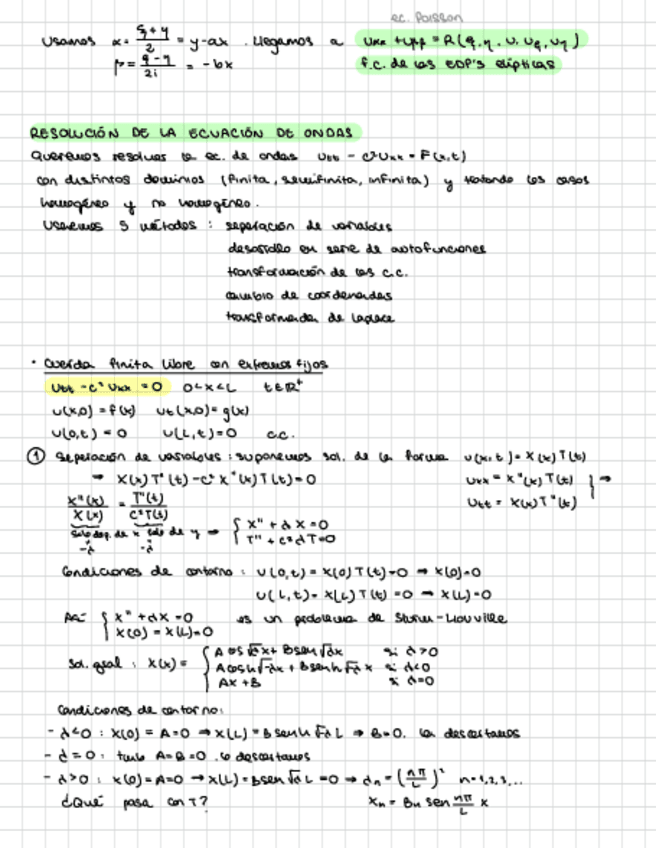 ec. Poisson
Usamos α = (ξ+η)/2 = y-ax . Llegamos a Uαα + Uββ = R(ξ, η, u, uξ, uη)
β = (ξ-η)/2i = -bx f.c. de las EDP's elípticas
RESOLUCIÓN DE LA ECUACIÓN DE ONDAS
Queremos resolver la ec. de ondas Utt - c²Uxx = F(x,t)
con distintos dominios (finita, semifinita, infinita) y tratando los casos
homogéneo y no homogéneo.
Usaremos 5 métodos : separación de variables
desarrollo en serie de autofunciones
transformación de las c.c.
cambio de coordenadas
transformada de Laplace
· Cuerda finita libre con extremos fijos
Utt - c² Uxx = 0 0<x<L t∈ℝ⁺
u(x,0) = f(x) ut(x,0) = g(x)
u(0,t) = 0 u(L,t) = 0 c.c.
① Separación de variables : suponemos sol. de la forma u(x,t) = X(x)T(t)
→ X(x)T''(t) - c² X''(x)T(t) = 0 Uxx = X''(x)T(t) } →
X''(x)/X(x) = T''(t)/c²T(t) Utt = X(x)T''(t)
solo dep. de x solo de y → { X'' + λX = 0
-λ -λ T'' + c²λT = 0
Condiciones de contorno : u(0,t) = X(0)T(t) = 0 → X(0) = 0
u(L,t) = X(L)T(t) = 0 → X(L) = 0
Así { X'' + λX = 0 es un problema de Sturm-Liouville
X(0) = X(L) = 0
Sol. gral : X(x) = { A cos √λx + B sen √λx si λ>0
A cosh √-λx + B senh √-λ x si λ<0
Ax + B si λ=0
Condiciones de contorno:
- λ<0 : X(0) = A = 0 → X(L) = B senh √-λ L → B=0. lo descartamos
- λ=0 : tuvo A=B=0 . lo descartamos
- λ>0 : X(0) = A = 0 → X(L) = B sen √λ L = 0 → λn = (nπ/L)² n=1,2,3,...
¿Qué pasa con T? Xn = Bn sen nπ/L x